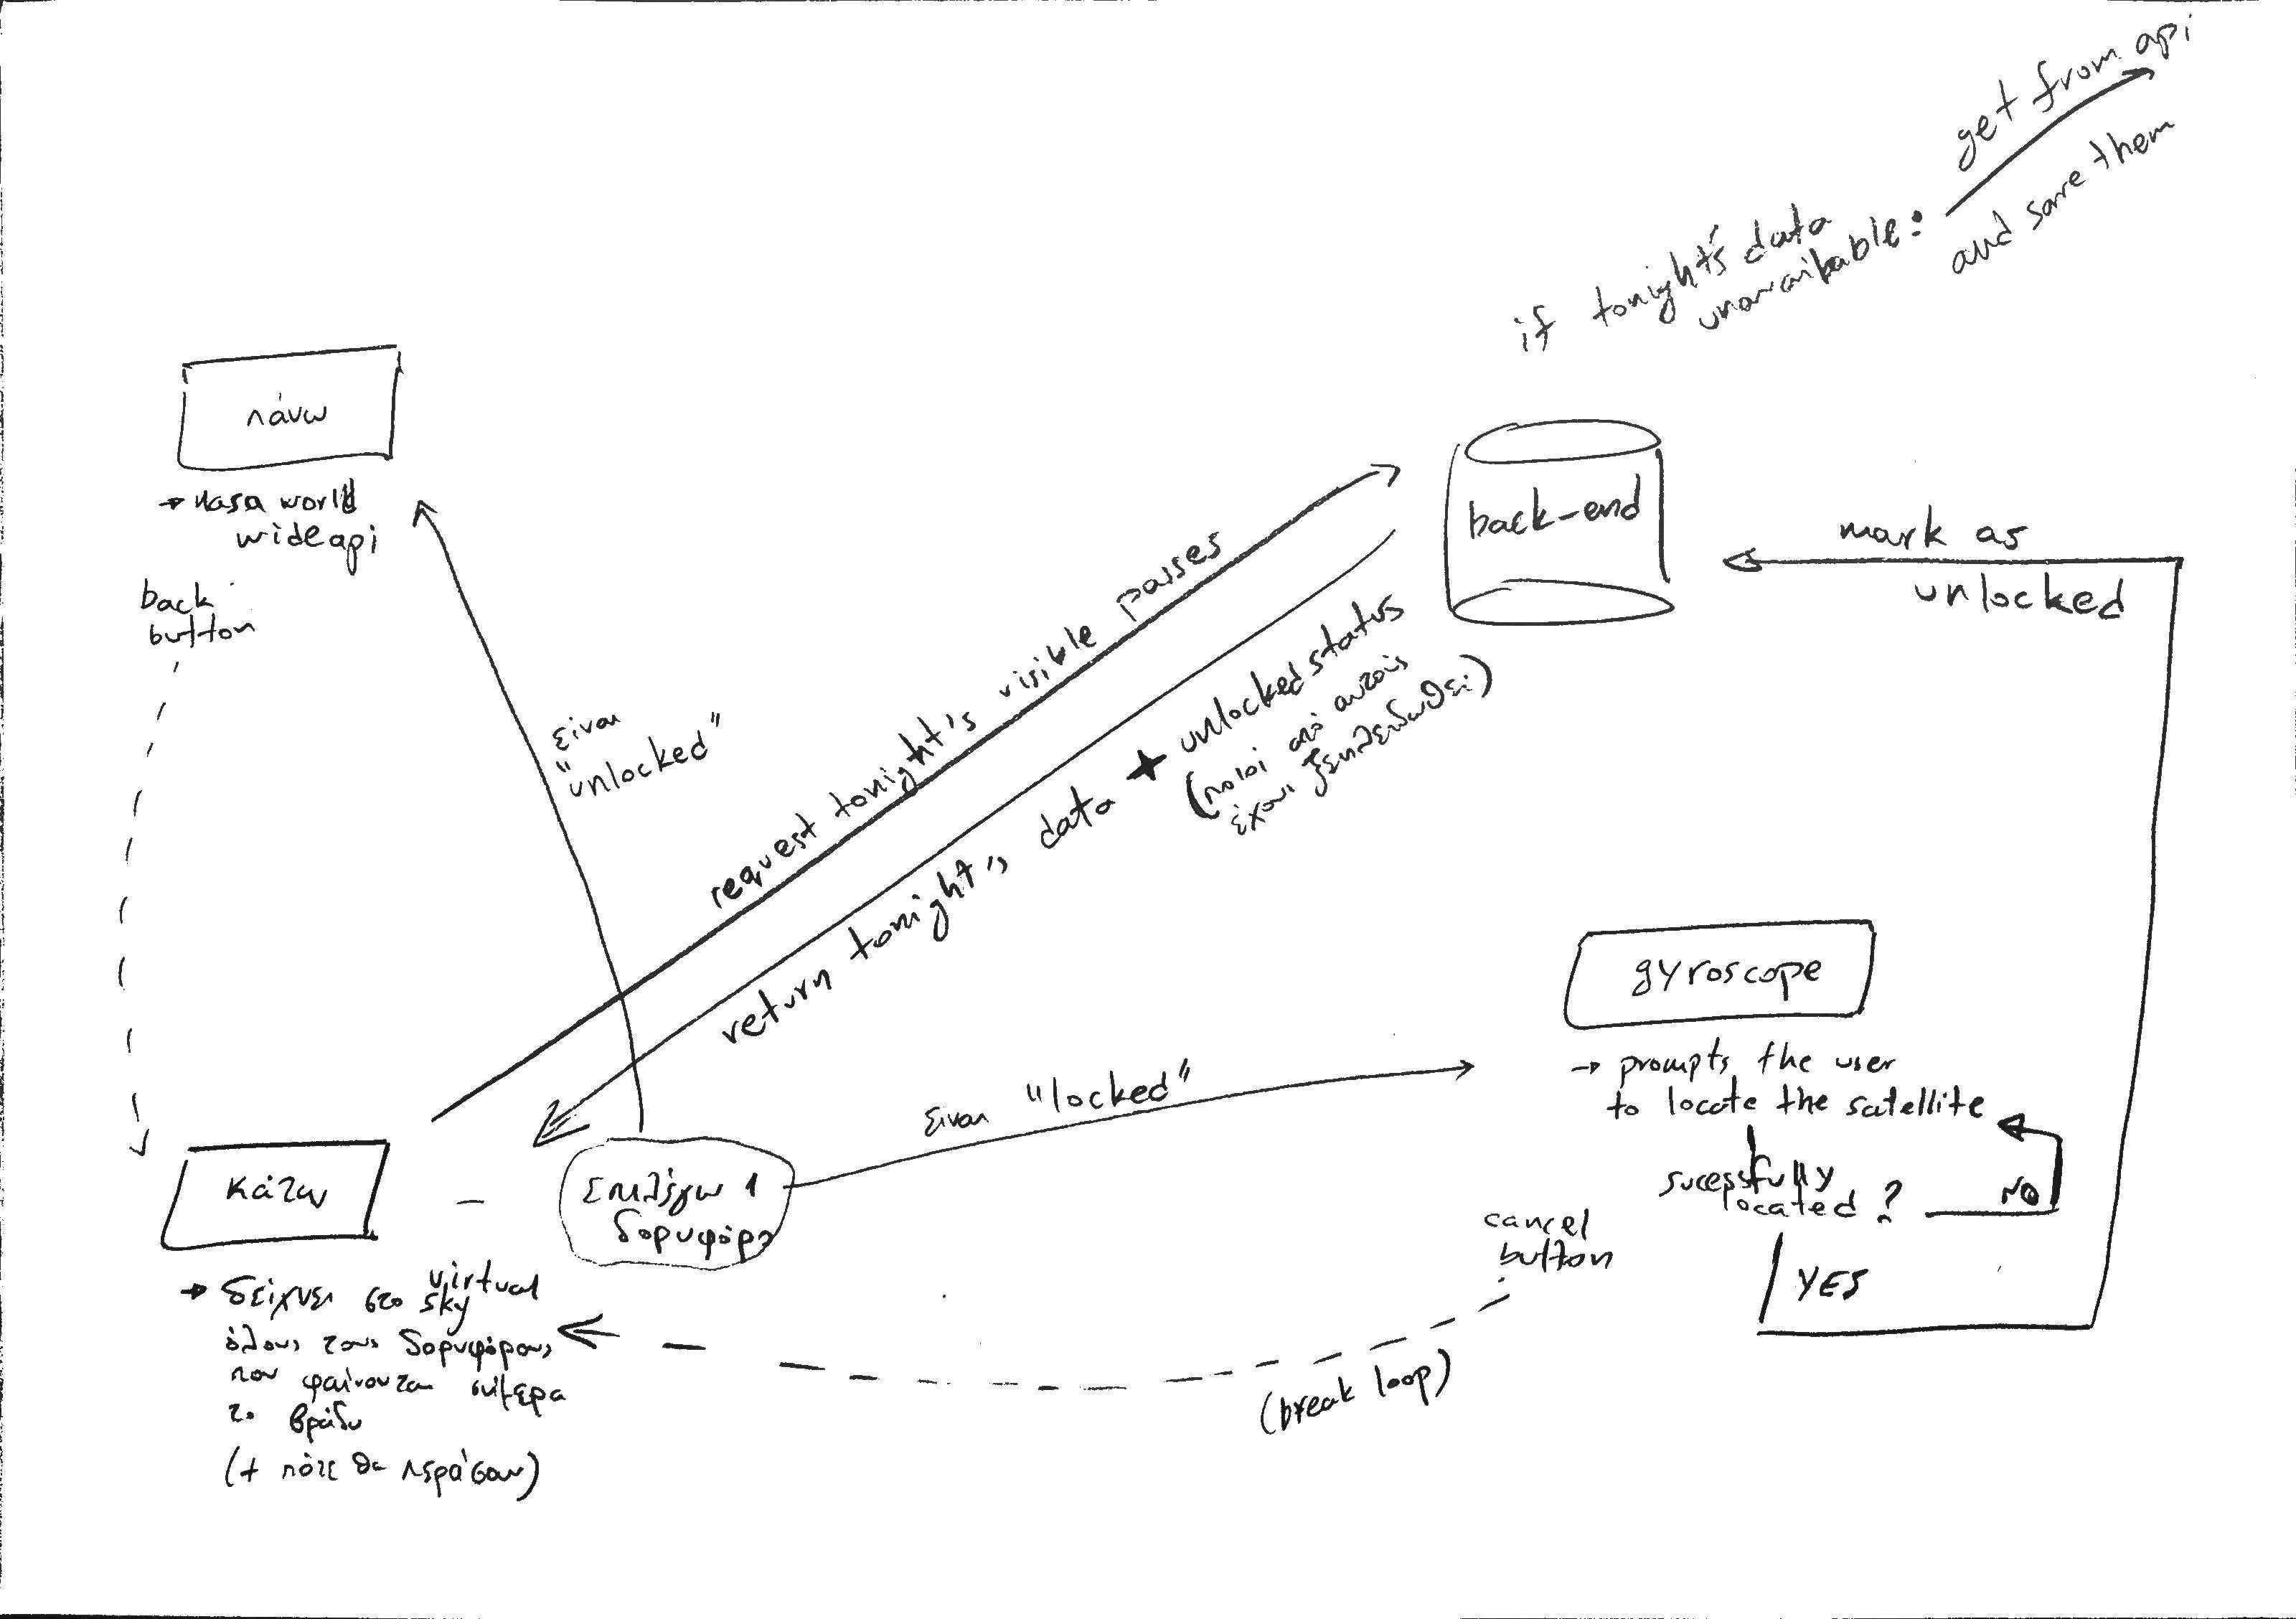 get from api
and save them
if tonight's data
unavailable:
πάνω
→ nasa world
wide api
back
button
back-end
mark as
unlocked
είναι
"unlocked"
request tonight's visible passes
return tonight's data + unlocked status
(ποιοι από αυτούς
έχουν ξεκλειδωθεί)
gyroscope
→ prompts the user
to locate the satellite
sucessfully
located?
NO
YES
είναι "locked"
κάτω
Επιλέγω 1
δορυφόρο
cancel
button
(break loop)
→ δείχνει στο virtual
sky
όλους τους δορυφόρους
που φαίνονται σήμερα
το βράδυ
(+ πότε θα περάσουν)